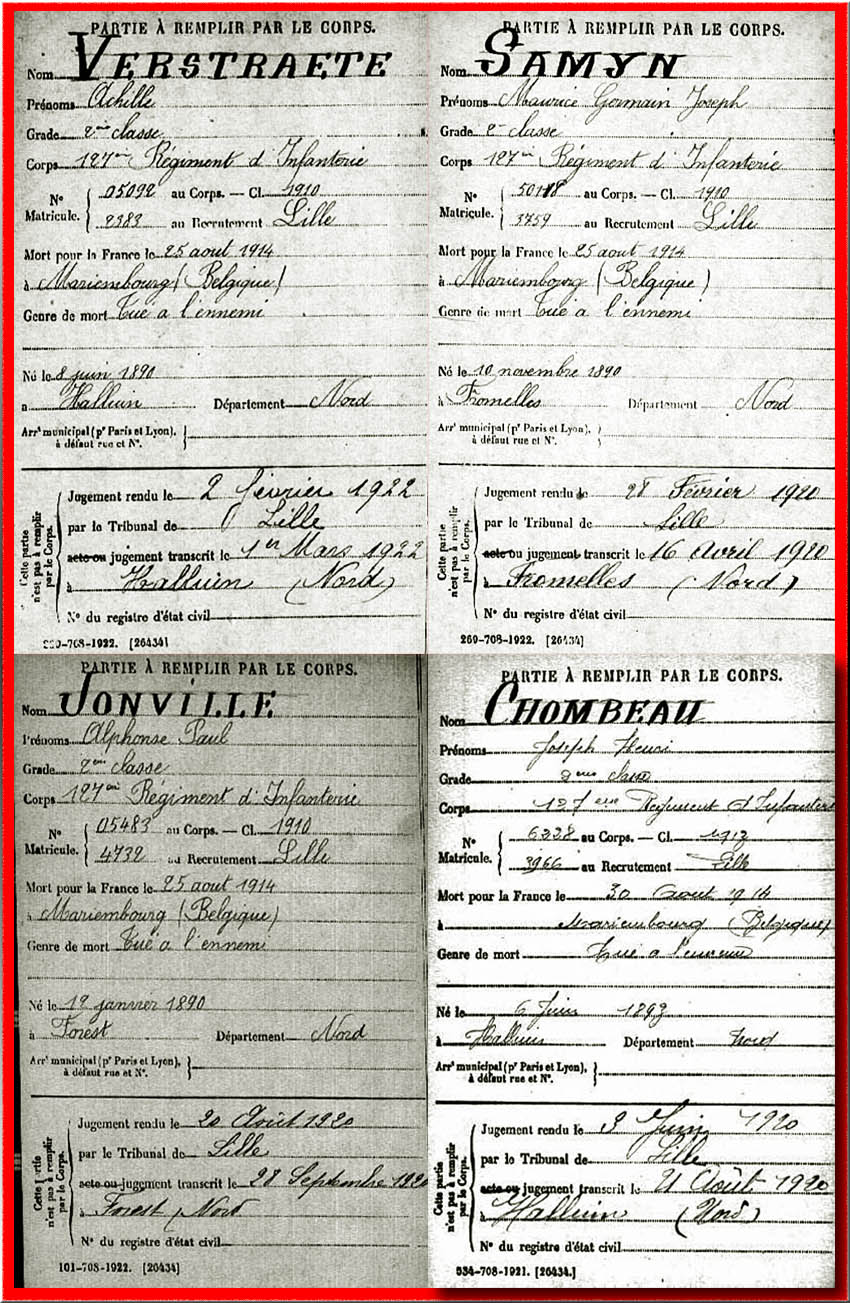 PARTIE À REMPLIR PAR LE CORPS.
Nom VERSTRAETE
Prénoms Achille
Grade 2me classe
Corps 127me Régiment d'Infanterie
N° Matricule. { 05092 au Corps. — Cl. 1910
2383 au Recrutement Lille
Mort pour la France le 25 aout 1914
à Mariembourg (Belgique)
Genre de mort Tué à l'ennemi
Né le 8 juin 1890
à Halluin Département Nord
Arrt municipal (pr Paris et Lyon), à défaut rue et N°. }
Cette partie n'est pas à remplir par le Corps.
Jugement rendu le 2 février 1922
par le Tribunal de Lille
acte ou jugement transcrit le 1er Mars 1922
à Halluin (Nord)
N° du registre d'état civil
-708-1922. [26434]
PARTIE À REMPLIR PAR LE CORPS.
Nom SAMYN
Prénoms Maurice Germain Joseph
Grade 2e classe
Corps 127me Régiment d'Infanterie
N° Matricule. { 50118 au Corps. — Cl. 1910
3759 au Recrutement Lille
Mort pour la France le 25 aout 1914
à Mariembourg (Belgique)
Genre de mort Tué à l'ennemi
Né le 10 novembre 1890
à Fromelles Département Nord
Arrt municipal (pr Paris et Lyon), à défaut rue et N°. }
Cette partie n'est pas à remplir par le Corps.
Jugement rendu le 28 Février 1920
par le Tribunal de Lille
acte ou jugement transcrit le 16 Avril 1920
à Fromelles (Nord)
N° du registre d'état civil
269-708-1922. [26434]
PARTIE À REMPLIR PAR LE CORPS.
Nom JONVILLE
Prénoms Alphonse Paul
Grade 2me classe
Corps 127me Régiment d'Infanterie
N° Matricule. { 05483 au Corps. — Cl. 1910
4732 au Recrutement Lille
Mort pour la France le 25 aout 1914
à Mariembourg (Belgique)
Genre de mort Tué à l'ennemi
Né le 12 janvier 1890
à Forest Département Nord
Arrt municipal (pr Paris et Lyon), à défaut rue et N°. }
Cette partie n'est pas à remplir par le Corps.
Jugement rendu le 20 Août 1920
par le Tribunal de Lille
acte ou jugement transcrit le 28 Septembre 1920
à Forest (Nord
N° du registre d'état civil
101-708-1922. [26434]
PARTIE À REMPLIR PAR LE CORPS.
Nom CHOMBEAU
Prénoms Joseph Henri
Grade 2eme classe
Corps 127eme Régiment d'Infanterie
N° Matricule. { 6228 au Corps. — Cl. 1913
3966 au Recrutement Lille
Mort pour la France le 30 Aout 1914
à Mariembourg (Belgique)
Genre de mort Tué à l'ennemi
Né le 6 Juin 1893
à Halluin Département Nord
Arrt municipal (pr Paris et Lyon), à défaut rue et N°. }
Cette partie n'est pas à remplir par le Corps.
Jugement rendu le 3 Juin 1920
par le Tribunal de Lille
acte ou jugement transcrit le 21 Août 1920
à Halluin (Nord)
N° du registre d'état civil
534-708-1921. [26434.]